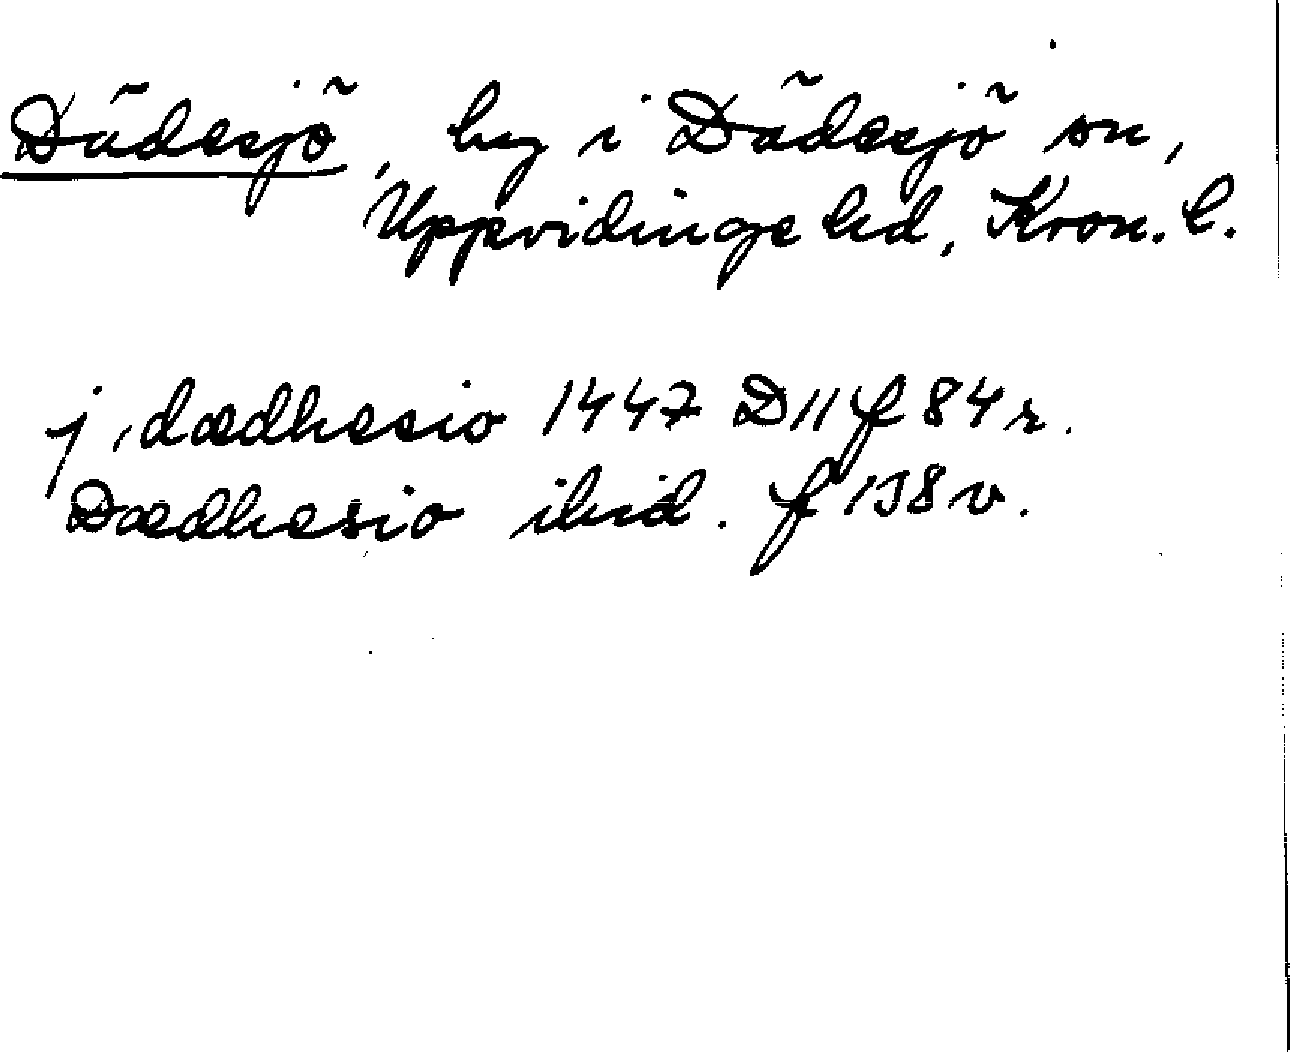 Dädesjö, by i Dädesjö sn,
Uppvidinge hd, Kron. l.
j dædhesio 1447 D 11 f 84 r.
Dædhesio ibid. f 138 v.